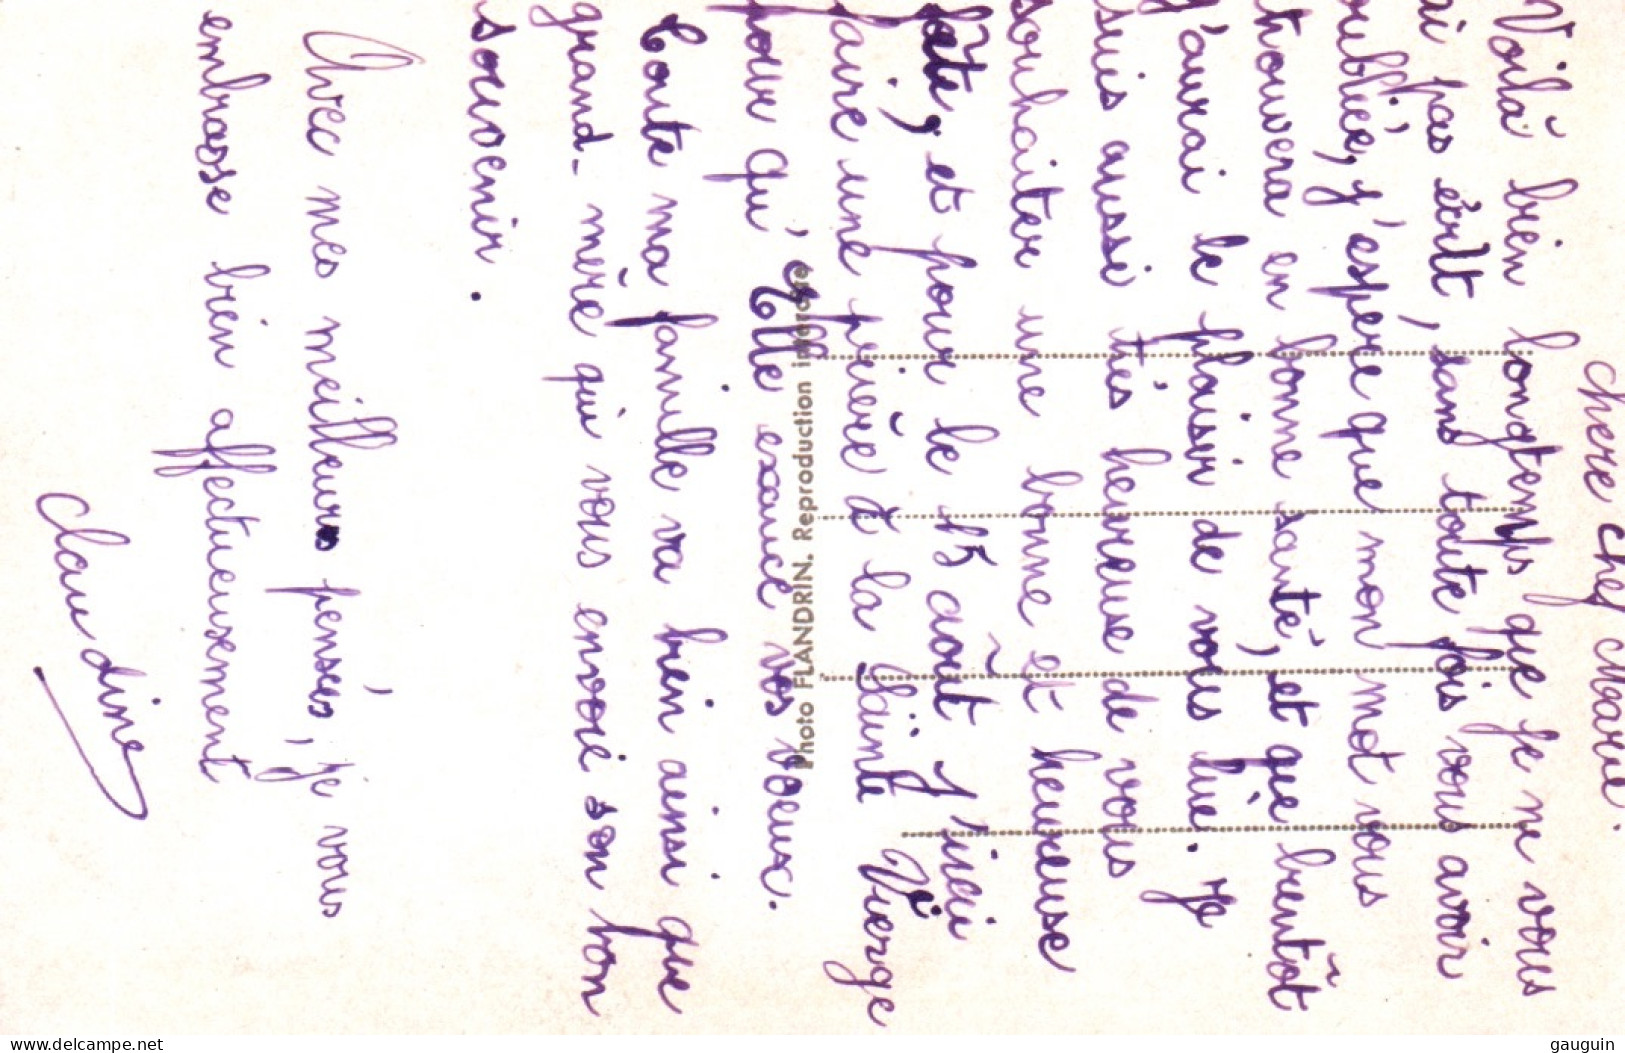 chère chef Marie.
Voilà bien longtemps que je ne vous
ai pas écrit, sans toute fois vous avoir
oubliée, j'espère que mon mot vous
trouvera en bonne santé, et que bientôt
j'aurai le plaisir de vous lire. Je
suis aussi très heureuse de vous
souhaiter une bonne et heureuse
fête, et pour le 15 août J'irai
faire une prière à la Sainte Vierge
pour qu'Elle exauce vos voeux.
Toute ma famille va bien ainsi que
grand-mère qui vous envoie son bon
souvenir.
Avec mes meilleures pensées, je vous
embrasse bien affectueusement
Claudine
Photo FLANDRIN. Reproduction interdite
www.delcampe.net
gauguin